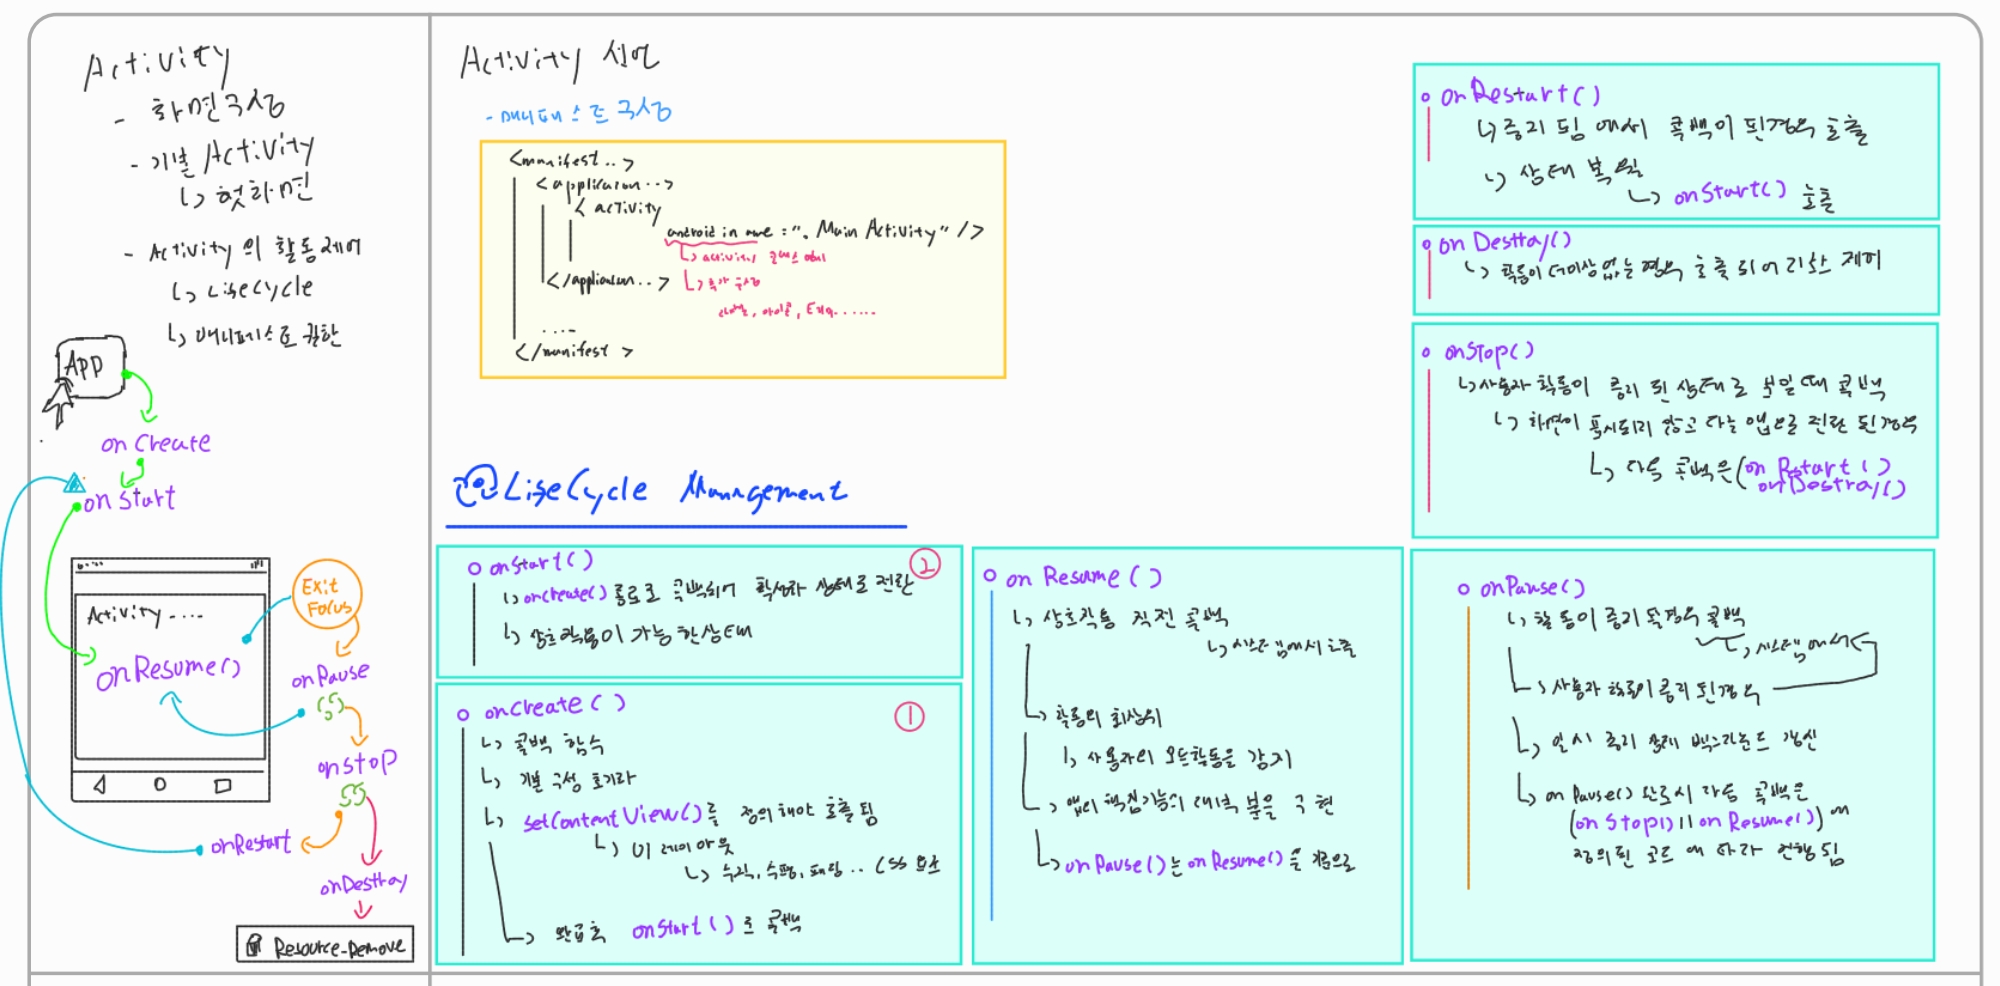 Activity
- 화면구성
- 기본 Activity
↳ 첫화면
- Activity 의 활동제어
↳ LifeCycle
↳ 매니페스트로 권한
App
onCreate
onStart
Activity ....
onResume()
Exit
Focus
onPause
onStop
onRestart
onDestray
Resource-Remove
Activity 선언
- 매니페스트 구성
<manifest..>
<application..>
< activity
android:name = ". Main Activity" />
↳ activity 클래스
↳ 추가 구성
아이콘,
</application..>
....
</manifest >
LifeCycle Management
onStart() ②
↳ onCreate() 종료로 콜백되어 활성화 상태로 전환
↳ 상호작용이 가능한상태
onCreate() ①
↳ 콜백 함수
↳ 기본 구성 초기화
↳ setContentView()를 정의해야 호출됨
↳ UI 레이아웃
↳ 수직, 수평, 패딩.. CSS 요소
↳ 완료후 onStart()로 콜백
on Resume()
↳ 상호작용 직전 콜백
↳ 시스템에서 호출
↳ 활동의 최상위
↳ 사용자의 모든활동을 감지
↳ 앱의 핵심기능의 대부분을 구현
↳ onPause()는 onResume()을 기준으로
onRestart()
↳ 중지 됨 에서 콜백이 된경우 호출
↳ 상태 복원
↳ onStart() 호출
on Desttay()
↳ 활동이 더이상 없는 경우 호출 되어 리소스 제거
onStop()
↳ 사용자 활동이 중지 된 상태로 보일때 콜백
↳ 화면이 표시되지 않고 다른 앱으로 전환 된경우
↳ 다음 콜백은 (on Restart()
onDestray()
onPause()
↳ 활동이 중지 될경우 콜백
↳ 시스템에서
↳ 사용자 활동이 중지 된경우
↳ 일시 중지 상태 백그라운드 갱신
↳ onPause() 완료시 다음 콜백은
(onStop() || onResume()) 에
정의된 코드에 따라 진행됨